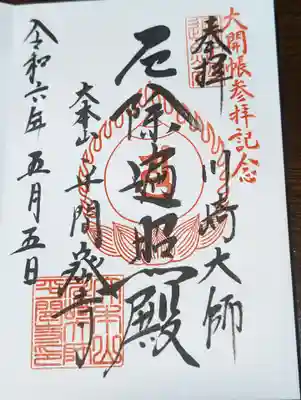 大開帳参拝記念
奉拝
川崎大師
厄除遍照殿
大本山 平間寺
令和六年 五月五日